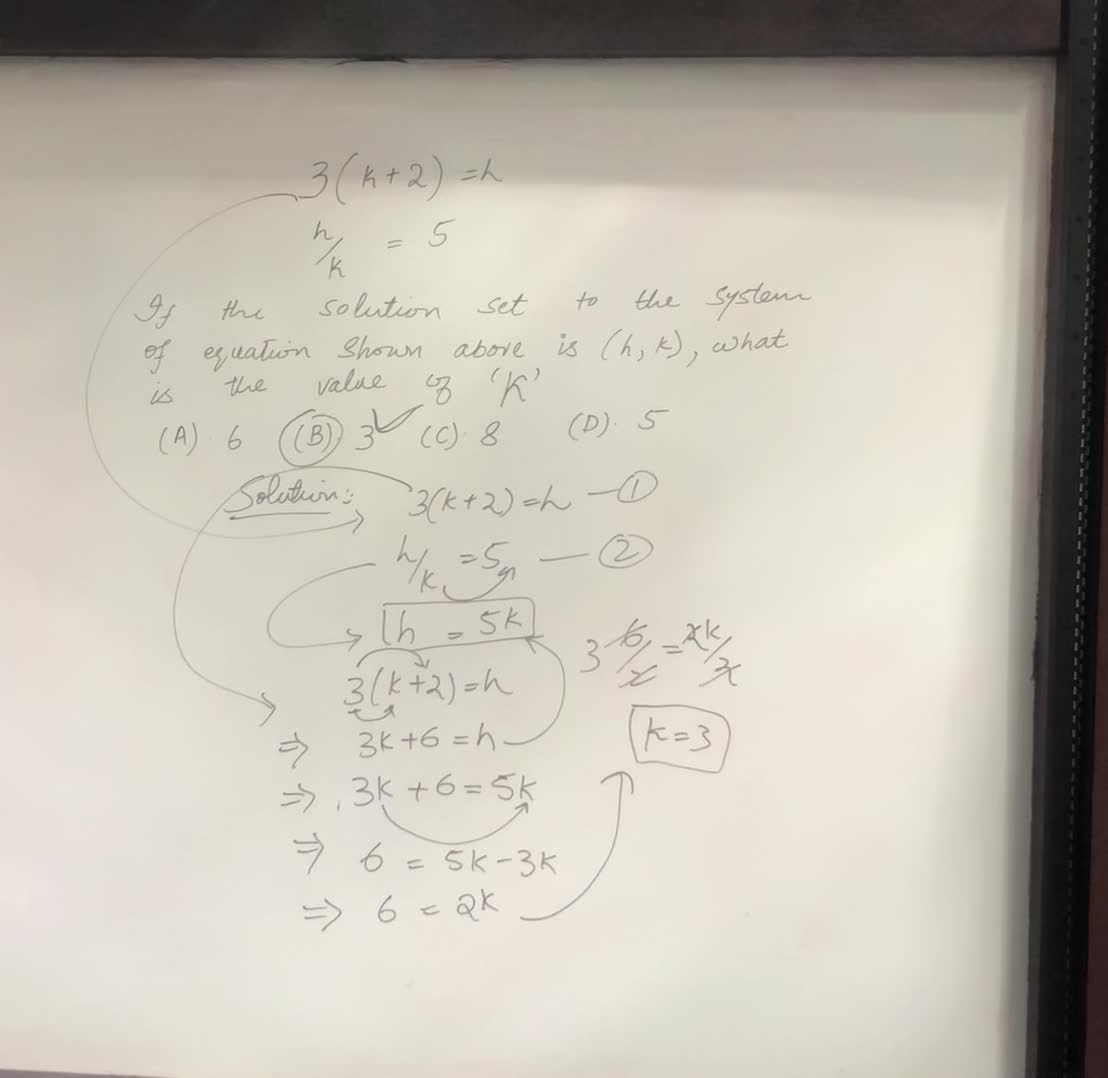 3(k+2) = h
h/k = 5
If the solution set to the system
of equation shown above is (h, k), what
is the value of 'K'
(A) 6 (B) 3 ✓ (C) 8 (D) 5
Solution: 3(k+2) = h — ①
h/k = 5 — ②
h = 5k
3(k+2) = h
⇒ 3k+6 = h
⇒ 3k+6 = 5k
⇒ 6 = 5k-3k
⇒ 6 = 2k
3 6/2 = 2k/2
k = 3